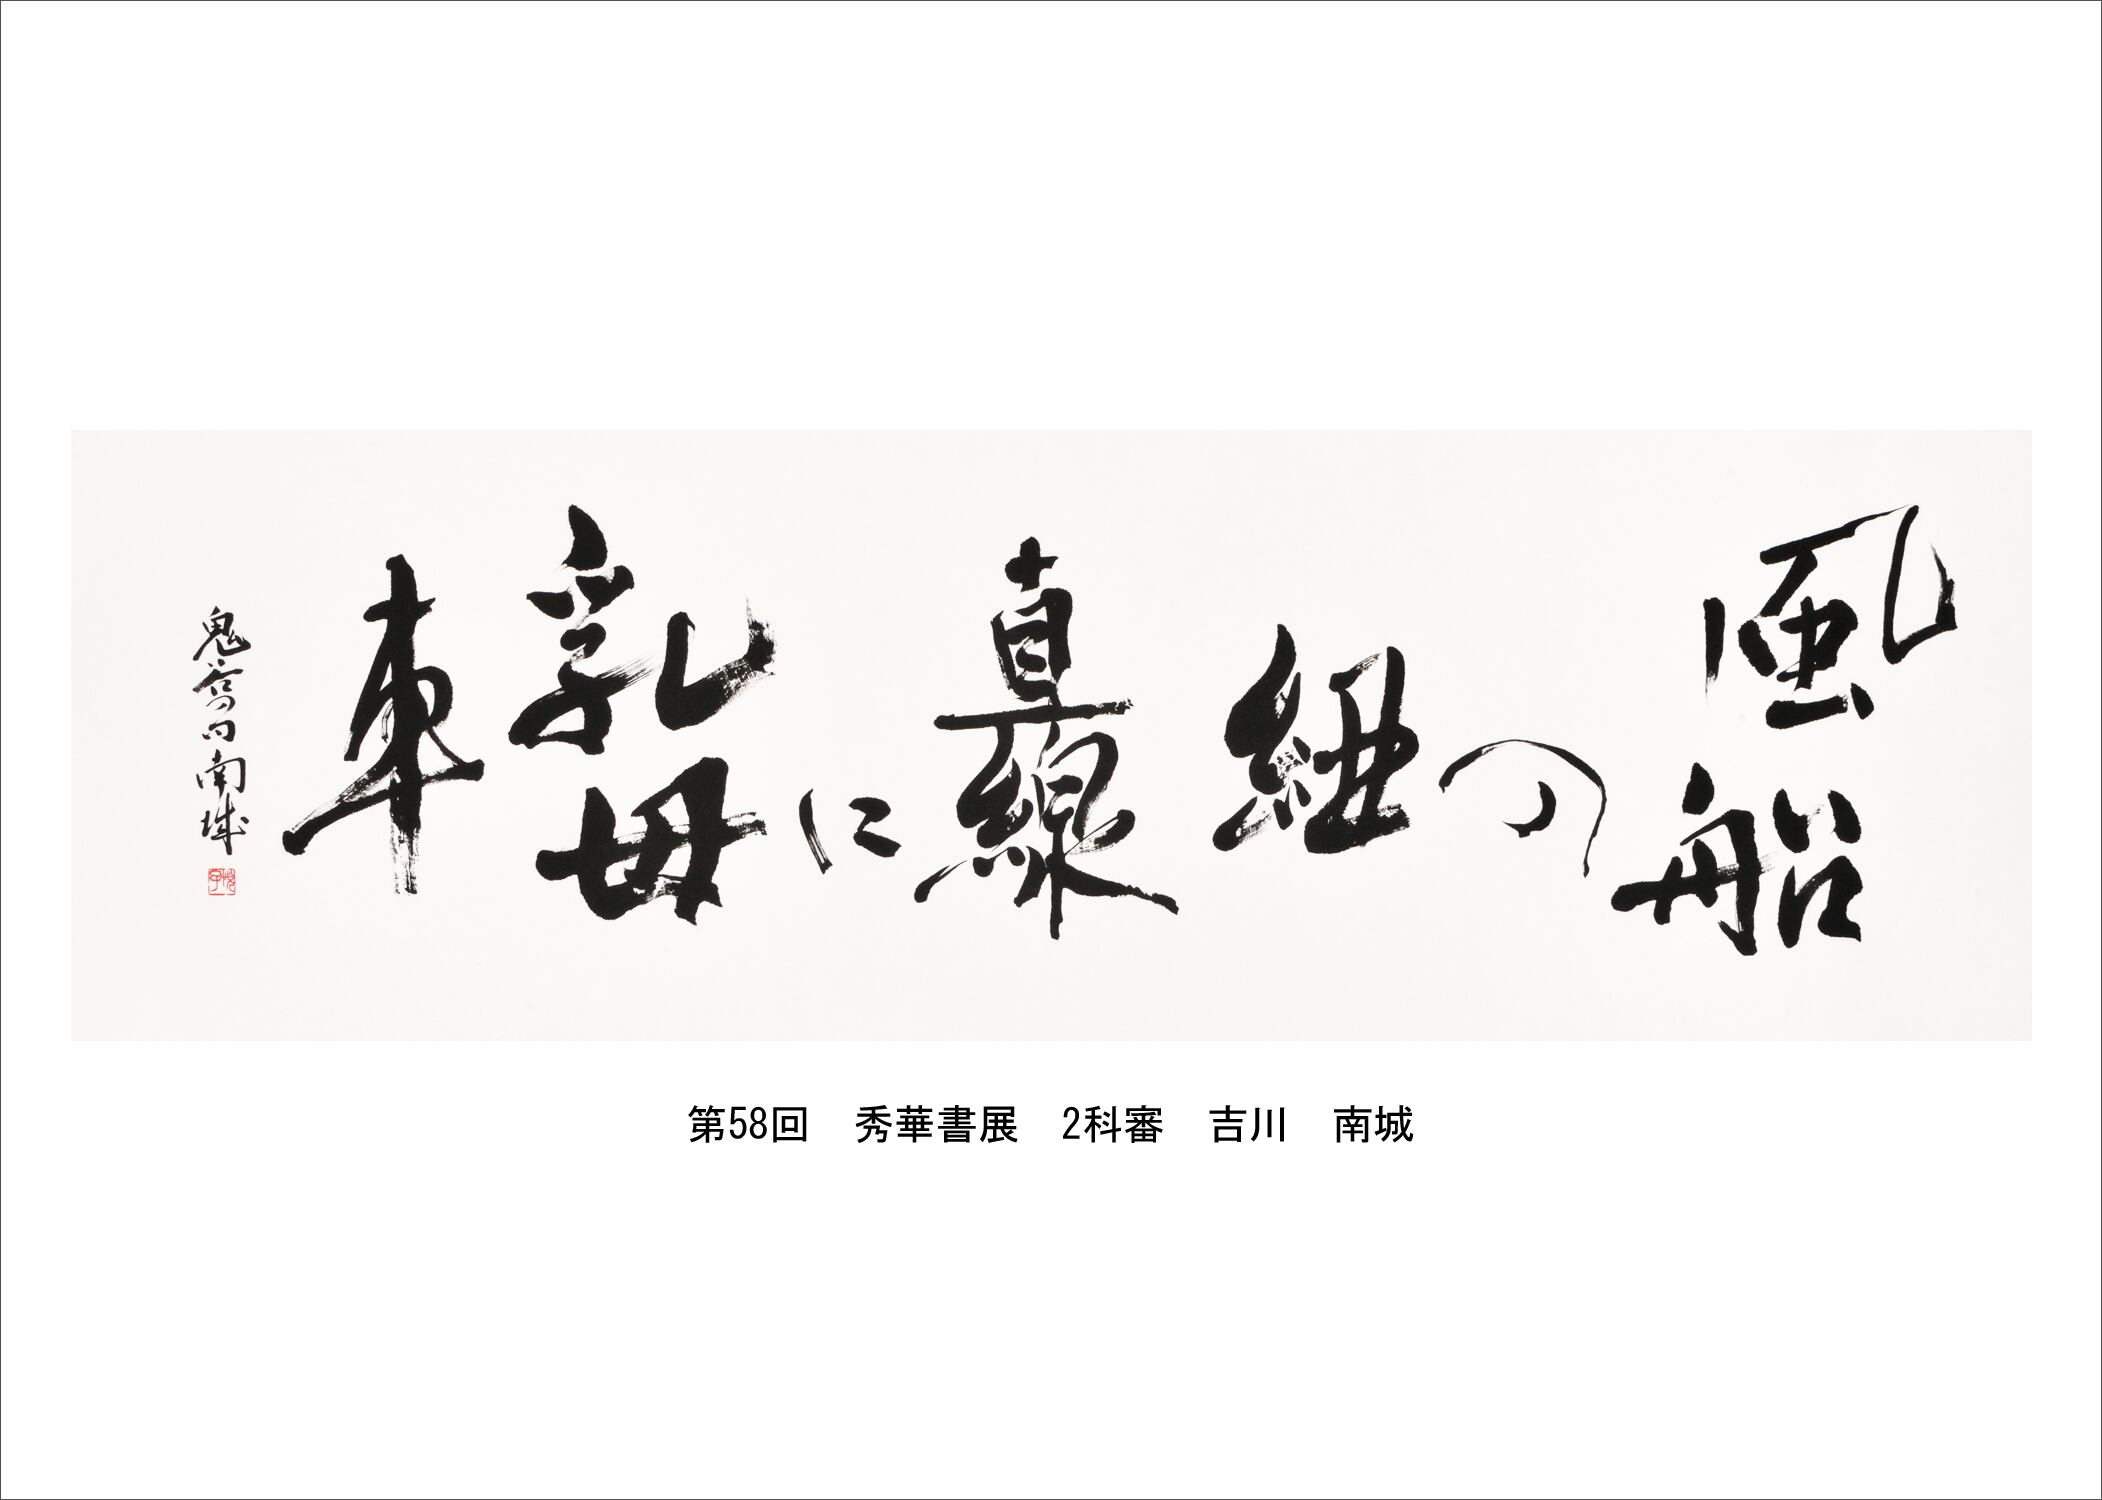 風船
の
紐
直線
に
乳母
車
鬼窓句南城
第58回 秀華書展 2科審 吉川 南城